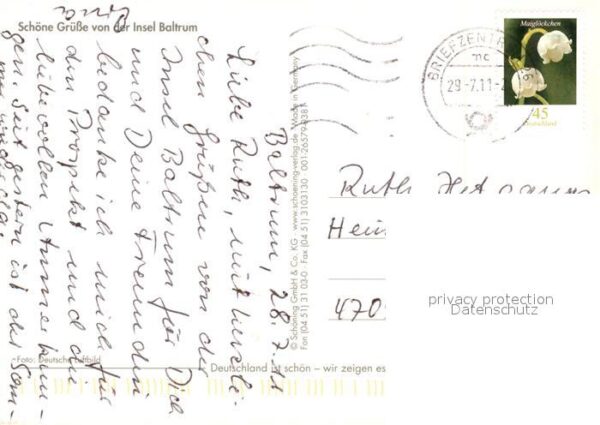 Schöne Grüße von der Insel Baltrum
Baltrum, 28.7.11
Liebe Ruth, mit herzli-
chen Grüßen von der
Insel Baltrum für Dich
und Deine Freundin
bedanke ich mich für
den Prospekt und die
liebevollen
gen. Seit gestern ist der Som-
Foto: Deutsche Luftbild
© Schöning GmbH & Co. KG · www.schoening-verlag.de · Made in Germany
Fon (04 51) 31 03-0 · Fax (04 51) 31 03130 · 001-26579-9381
Deutschland ist schön – wir zeigen es
BRIEFZENTR
29.-7.11-
Maiglöckchen
45
Deutschland
Ruth
Hein
470
privacy protection
Datenschutz